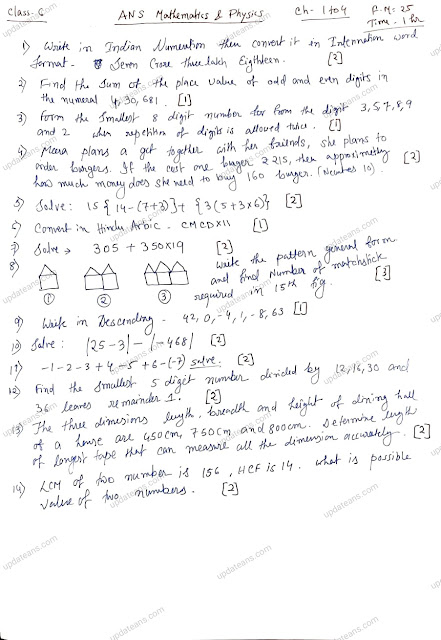 Class-6 ANS Mathematics & Physics Ch- 1 to 4 F.M: 25
Time: 1 hr
1) Write in Indian Numeration then convert it in Internation word
format - Seven Crore three lakh Eighteen. [2]
2) Find the Sum of the place value of odd and even digits in
the numeral 4,30,681. [1]
3) Form the Smallest 8 digit number from the digit 3,5,7,8,9
and 2 when repetition of digits is allowed twice. [1]
4) Meera plans a get together with her friends, she plans to
order burgers. If the cost one burger ₹ 215, then approximatley
how much money does she need to buy 160 burger. (Neartes 10). [2]
5) Solve: 15{14-(7+3)} + {3(5+3×6)} [2]
6) Convert in Hindu Arbic - CMCDXII [1]
7) Solve → 305 + 350×19 [2]
8) Write the pattern general form
and find Number of matchstick
① ② ③ required in 15th fig. [3]
9) Write in Descending - 42, 0, -4, 1, -8, 63 [1]
10) Solve: |25-3| - |-468| [2]
11) -1-2-3+4-5+6-(-7) solve. [2]
12) Find the Smallest 5 digit number divided by 12,16,30 and
36 leaves remainder 1. [2]
13) The three dimesions length, breadth and height of dining hall
of a house are 450cm, 750cm and 800cm. Determine length
of longest tape that can measure all the dimension accurately. [2]
14) LCM of two number is 156, HCF is 14. what is possible
value of two numbers. [2]
updateans.com